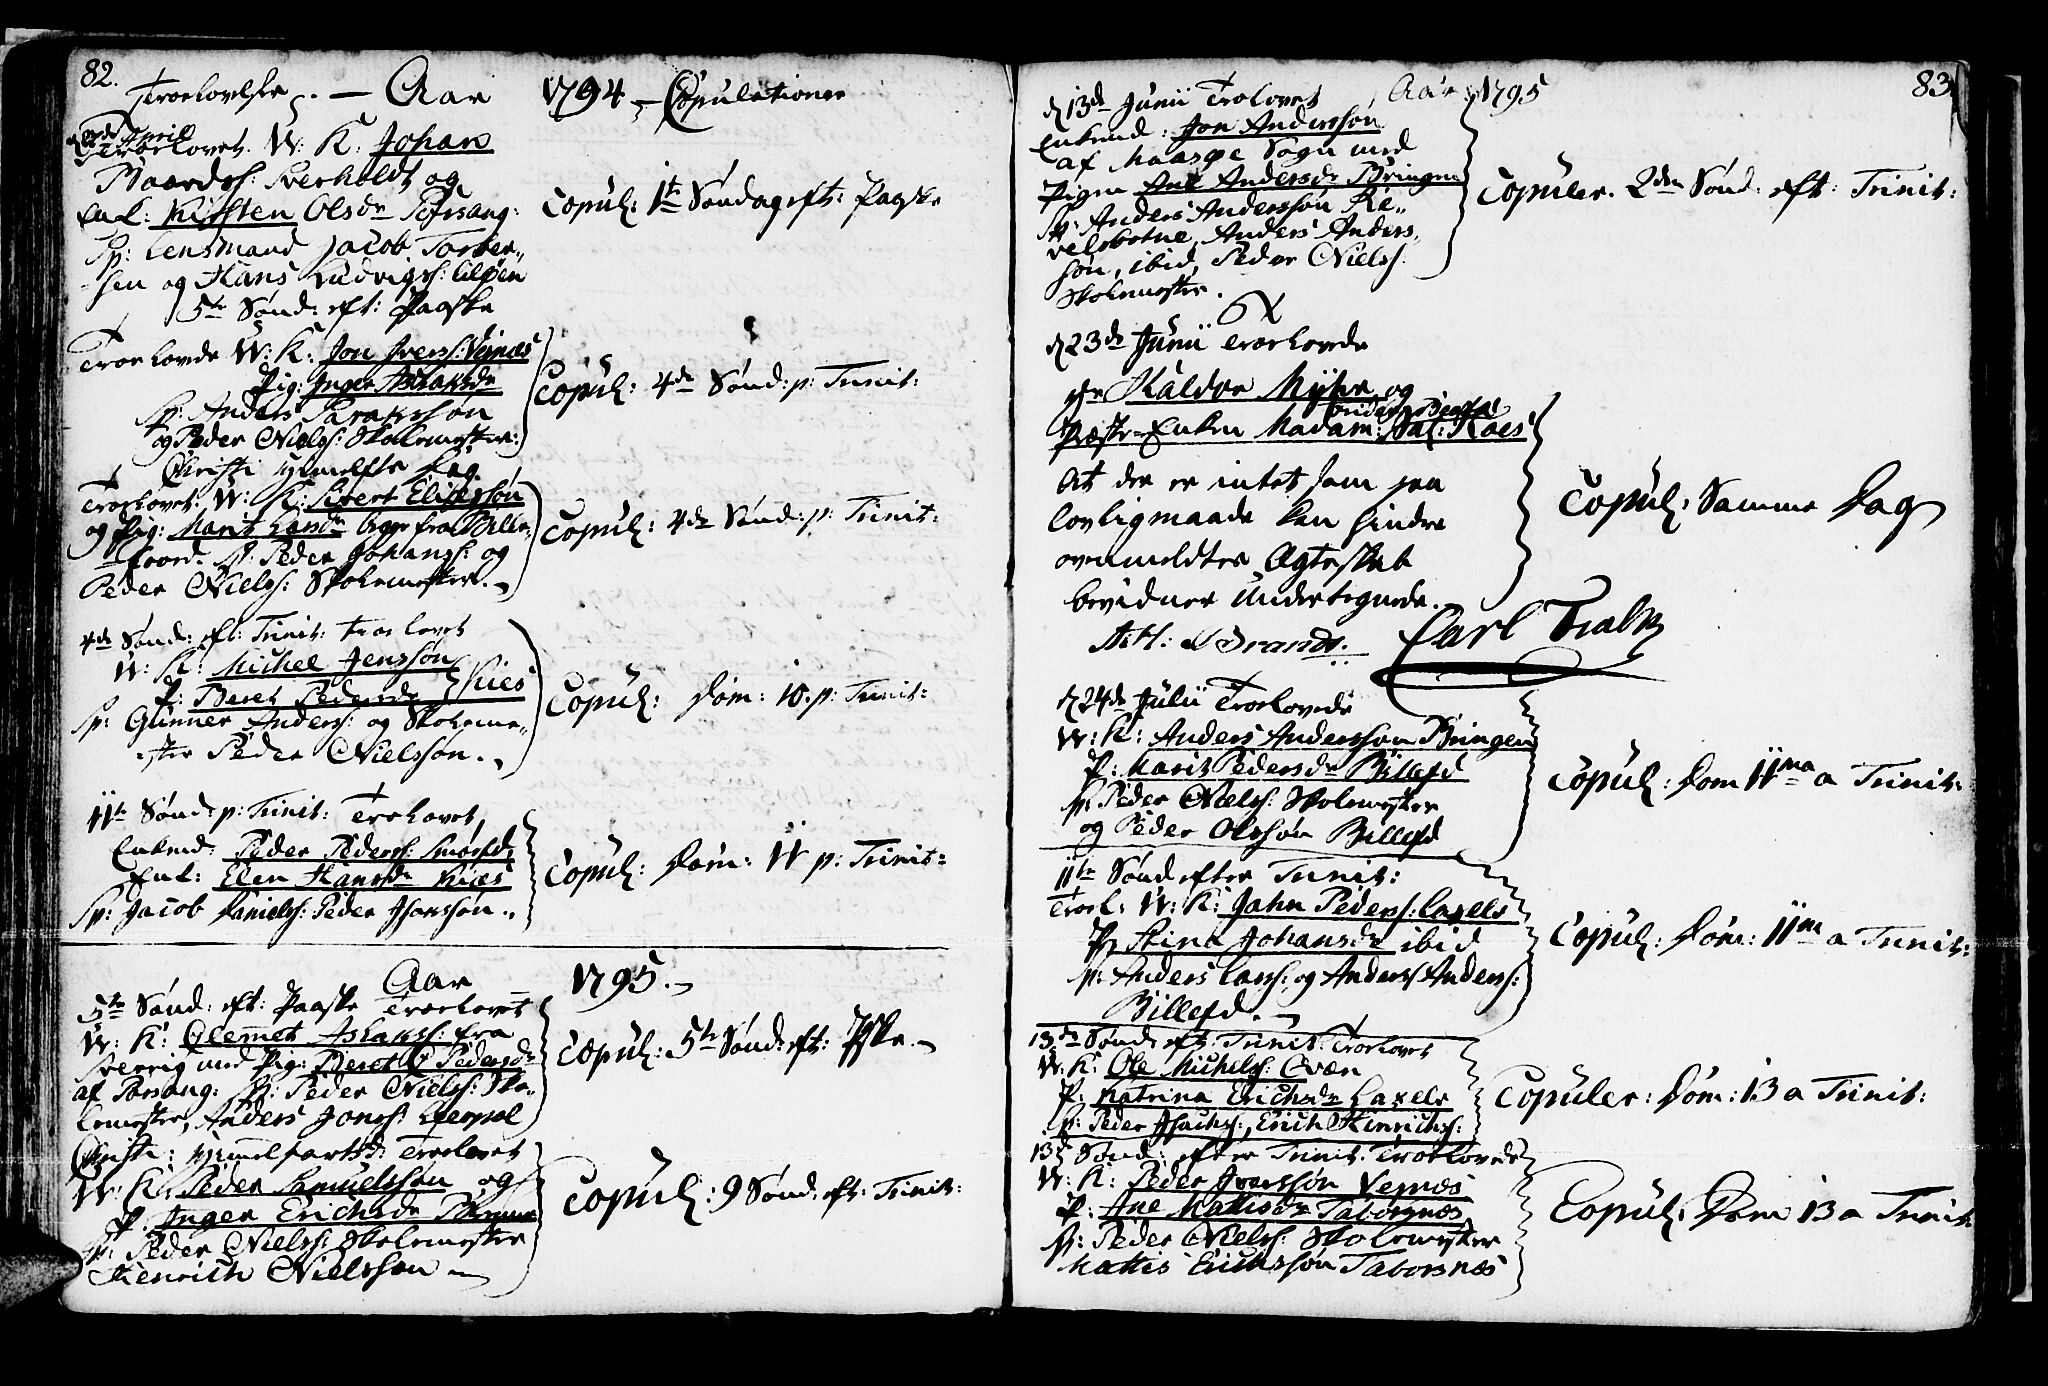 82.
Troelovelse. — Aar 1794 Copulationer
April
Troelovet. W: K: Johan
Baards: Sverholdt og
Enk: Kirsten Olsdr Porsang:
Sp: Lensmand Jacob Torber-
sen og Hans Ludvigs:
Copul: 1te Søndag eft: Paaske
5te Sønd: eft: Paaske
Troelovede W: K: Jon Ivers: Veines
Pig: Inger Aslaksdr
Sp: Anders
og Peder Niels: Skolemester:
Copul: 4de Sønd: p: Trinit:
Christi Himelfts Dag
Troelovet W: K: Sivert Elissøn
og Pig: Marit Larsdr begge fra Bille-
fiord. Sp: Peder Johans: og
Peder Niels: Skolemester.
Copul: 4de Sønd: p: Trinit:
4de Sønd: eft: Trinit: troelovet
W: K: Michel Jenssøn
P: Beret Pedersdr Kies
Sp: Gunner Anders: og Skoleme-
ster Peder Nielssøn.
Copul: Dom: 10. p: Trinit:
11te Sønd: p: Trinit: Troelovet
Enkmd: Peder Peders: Smørfd
Enk: Elen Hansdr Kies
Sp: Jacob Daniels: Peder
Copul: Dom: 11 p: Trinit:
Aar 1795.
5te Sønd: eft: Paaske Troelovet
W: K: Clemet Aslaks: fra
Sverrig med Pig: Beret Pedersdr
af Porsang: Sp: Peder Niels: Sko-
lemester, Anders Jons:
Copul: 5te Sønd: eft: Pske.
Christi: Himmelfartsd: Troelovet
W: K: Peder Samuelssøn og
P. Inger Erichsdr
Sp: Peder Niels: Skolemester
Henrich Nielssøn
Copul: 9 Sønd: eft: Trinit:
83
Aar 1795
d 13de Junii Trolovet
Enkemd: Jon Anderssøn
af Maasøe Sogn med
Pigen Ane Andersdr Bringen
Sp: Anders Anderssøn Re-
velsbotne, Anders Anders-
søn, ibid, Peder Niels:
Skolemester.
Copuler. 2den Sønd: eft: Trinit:
d 23de Junii troelovede
Hr Haldor Myhre og
Præste-Enken Madam: Sal: Kaes
At der er intet som paa
lovligmaade kan hindre
ovenmeldtes Ægteskab
bevidner Undertegnede.
Brandt. Carl
Copul: Samme Dag
d 24de Julii Troelovede
W: K: Anders Anderssøn Bringen
P: Marit Pedersdr Billefd
Sp: Peder Niels: Skolemester
og Peder Olssøn Billefd
Copul: Dom 11ma a Trinit:
11te Sønd efter Trinit:
Troel: W: K: John Peders: Laxelv
P Stina Johansdr ibid
Sp: Anders Lars: og Anders Anders:
Billefd.
Copul: Dom: 11ma a Trinit:
13de Sønd: eft: Trinit: Troelovet
W: K: Ole Michels: Cvæn
P: Katrina Erichsdr Laxelv
Sp: Peder Isachs:, Erich Hinrichs:
Copuler: Dom: 13 a Trinit:
13d Sønd: efter Trinit: Troelovede
W: K: Peder Iverssøn Veines
P: Ane Mattisdr Taborsnæs
Sp: Peder Niels: Skolemester
Mattis Erichssøn Taborsnæs
Copul: Dom 13 a Trinit